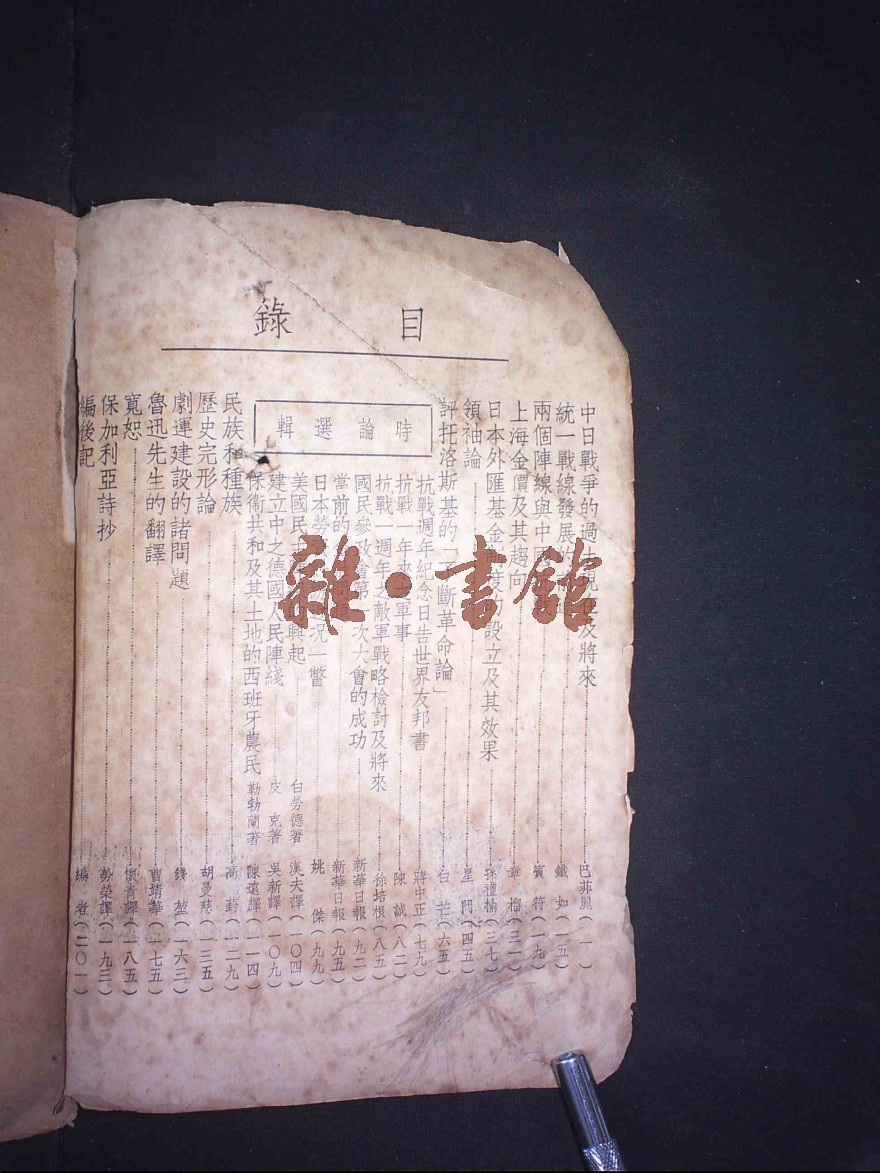 目錄
中日戰爭的過去現在及將來 巴菲麗(一)
統一戰線發展的 鐵如(一五)
兩個陣線與中國 賓符(一九)
上海金價及其趨向 章榴(三一)
日本外匯基金制度之設立及其效果 孫禮榆(三七)
領袖論 星門(四五)
評托洛斯基的「不斷革命論」 白芒(六五)
時論選輯
抗戰週年紀念日告世界友邦書 蔣中正(七九)
抗戰一年來之軍事 陳誠(八二)
抗戰一週年之敵軍戰略檢討及將來 徐培根(八五)
國民參政會第一次大會的成功 新華日報(九二)
當前的 新華日報(九五)
日本勞 近况一瞥 姚傑(九九)
美國民主 興起 白勞德著 漢夫譯(一〇四)
建立中之德國人民陣綫 皮克著 吳新譯(一〇九)
保衛共和及其土地的西班牙農民 勒勃蘭著 陳遠譯(一一四)
民族和種族 高葑(一二九)
歷史完形論 胡曼慈(一三五)
劇運建設的諸問題 錢堃(一六三)
魯迅先生的翻譯 曹靖華(一七五)
寬恕 懷青譯(一八五)
保加利亞詩抄 勞榮譯(一九三)
編後記 編者(二〇一)
雜·書館